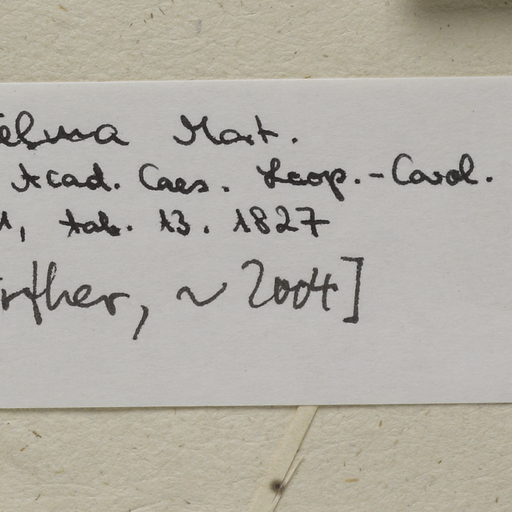 elma Mart.
Acad. Caes. Leop.-Carol.
1, tab. 13. 1827
rther, ~ 2004]